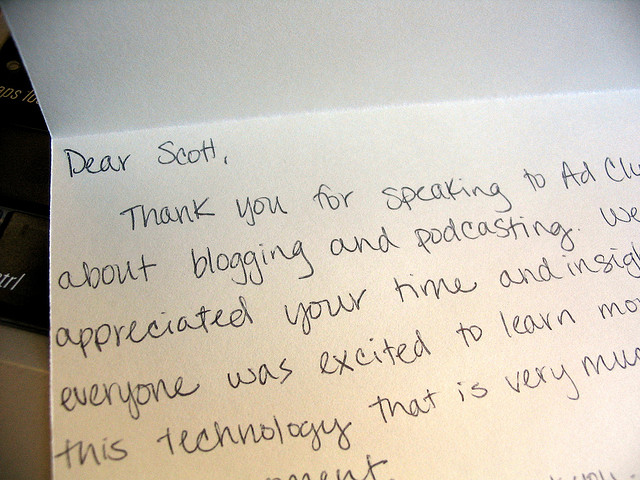 Dear Scott,
Thank you for speaking to Ad
about blogging and podcasting. We
appreciated your time and
everyone was excited to learn
this technology that is very